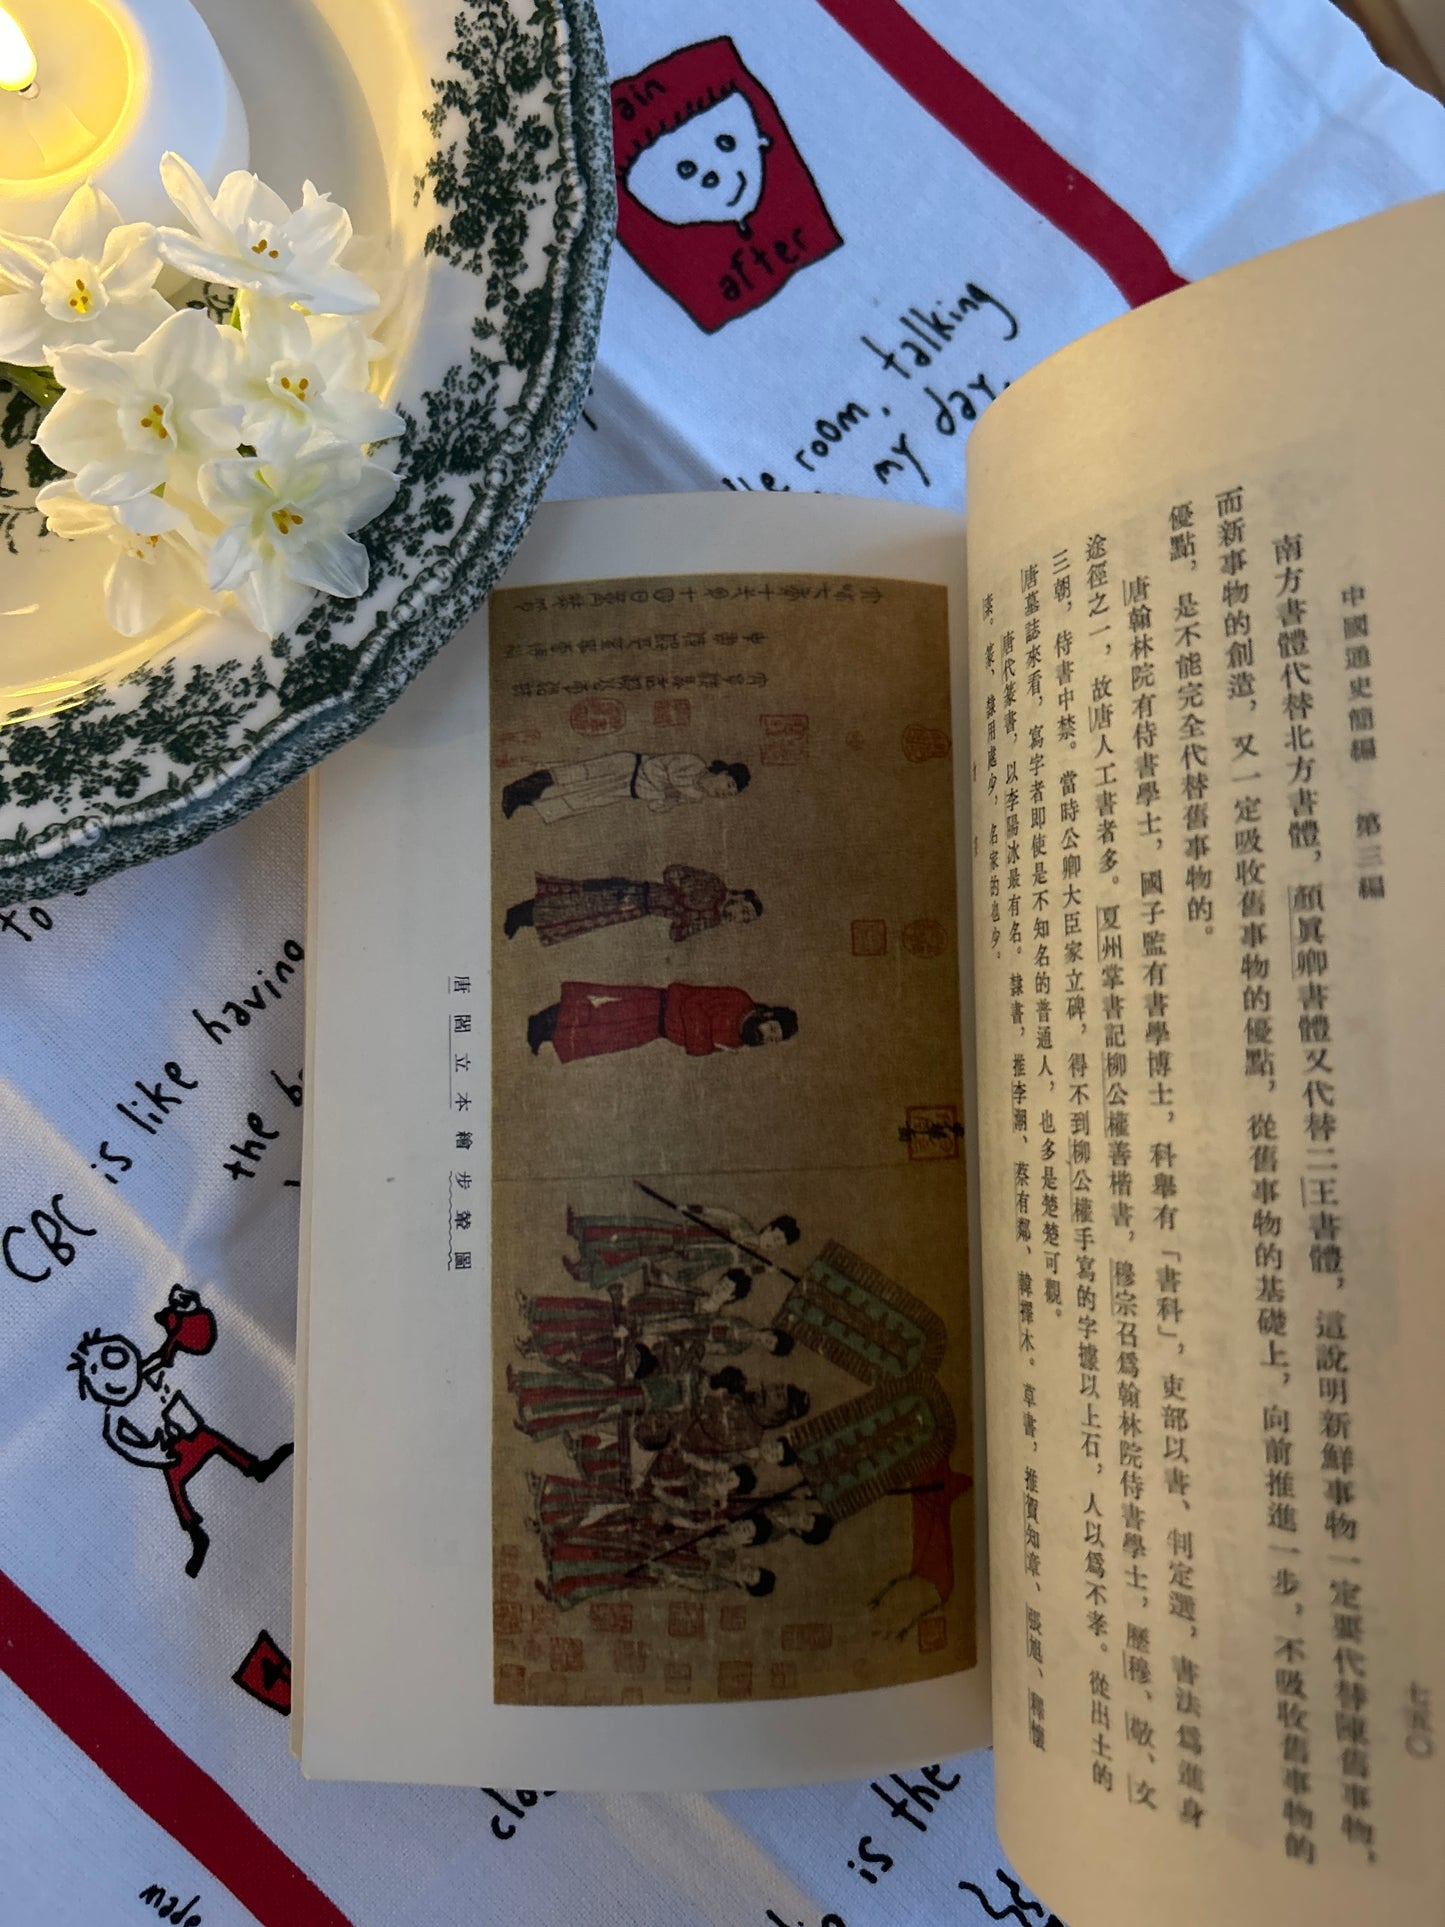 中國通史簡編　第三編
七五〇
南方書體代替北方書體，顏眞卿書體又代替二王書體，這說明新鮮事物一定要代替陳舊事物，
而新事物的創造，又一定吸收舊事物的優點，從舊事物的基礎上，向前推進一步，不吸收舊事物的
優點，是不能完全代替舊事物的。
唐翰林院有侍書學士，國子監有書學博士，科舉有「書科」，吏部以書、判定選，書法爲進身
途徑之一，故唐人工書者多。夏州掌書記柳公權善楷書，穆宗召爲翰林院侍書學士，歷穆、敬、文
三朝，侍書中禁。當時公卿大臣家立碑，得不到柳公權手寫的字據以上石，人以爲不孝。從出土的
唐墓誌來看，寫字者即使是不知名的普通人，也多是楚楚可觀。
唐代篆書，以李陽冰最有名。隸書，推李潮、蔡有鄰、韓擇木。草書，推賀知章、張旭、釋懷
素。篆、隸用處少，名家的也少。
唐閻立本繪步輦圖
after
room, talking
my day.
CBC is like having
the
to
is the